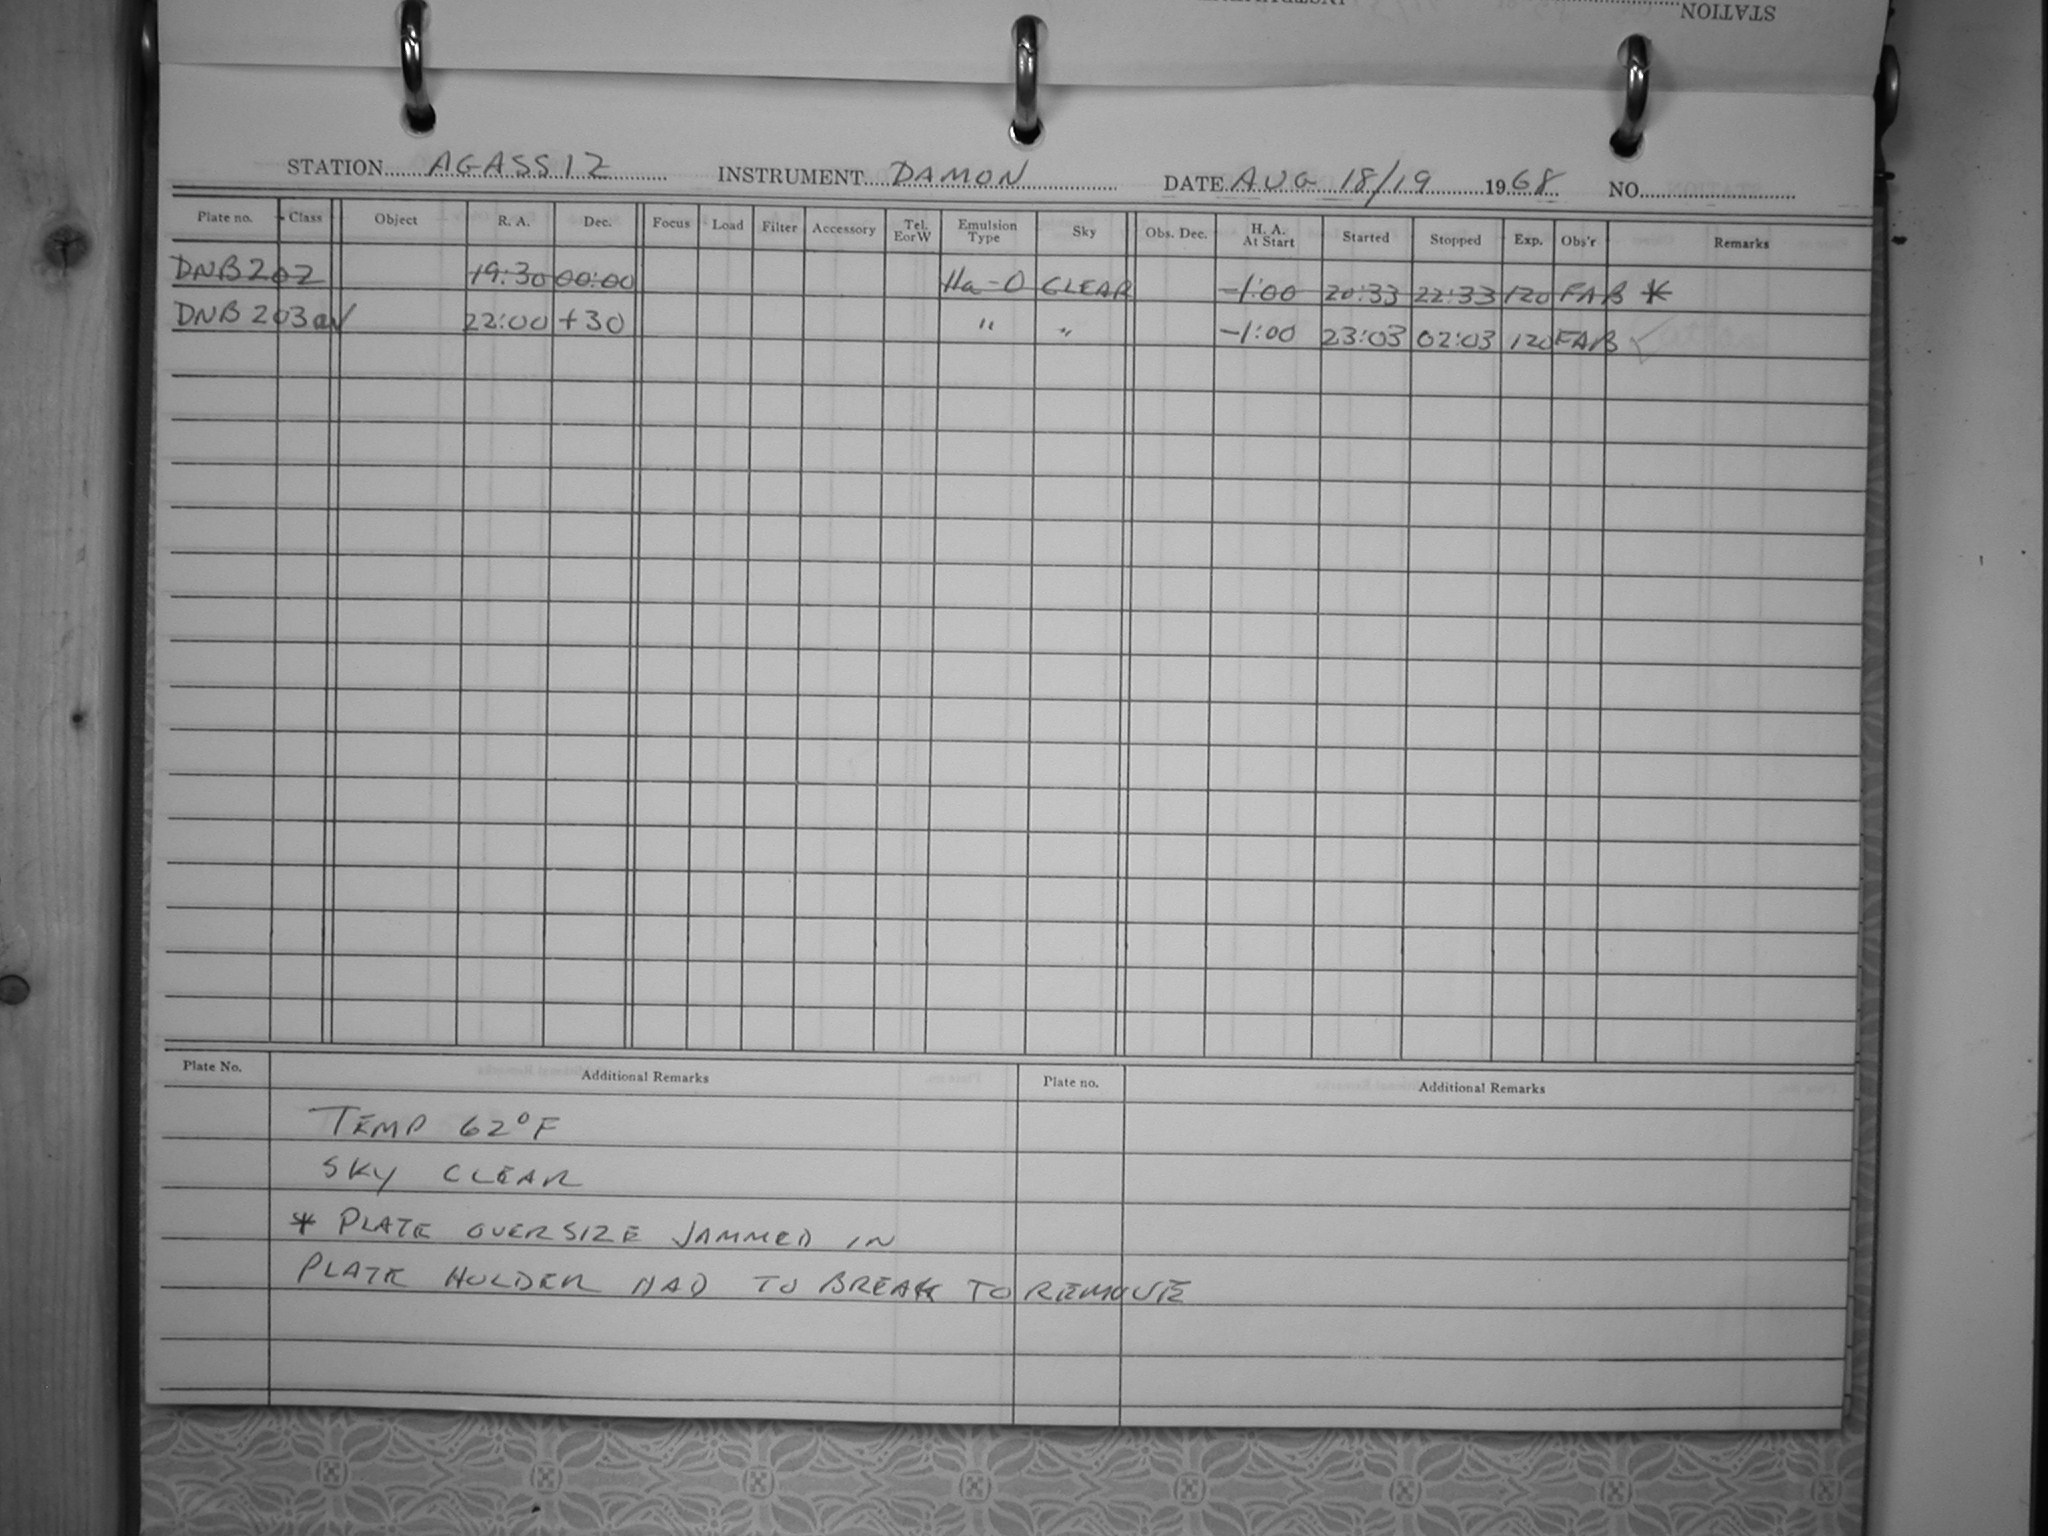 STATION
STATION AGASSIZ INSTRUMENT DAMON DATE AUG 18/19 1968 NO.
Plate no. Class Object R. A. Dec. Focus Load Filter Accessory Tel. EorW Emulsion Type Sky Obs. Dec. H. A. At Start Started Stopped Exp. Obs'r Remarks
DNB 202 19:30 00:00 IIa-O CLEAR -1:00 20:33 22:33 120 FAB *
DNB 203 22:00 +30 " " -1:00 23:03 02:03 120 FAB ✓
Plate No. Additional Remarks Plate no. Additional Remarks
TEMP 62°F
SKY CLEAR
* PLATE OVERSIZE JAMMED IN
PLATE HOLDER HAD TO BREAK TO REMOVE